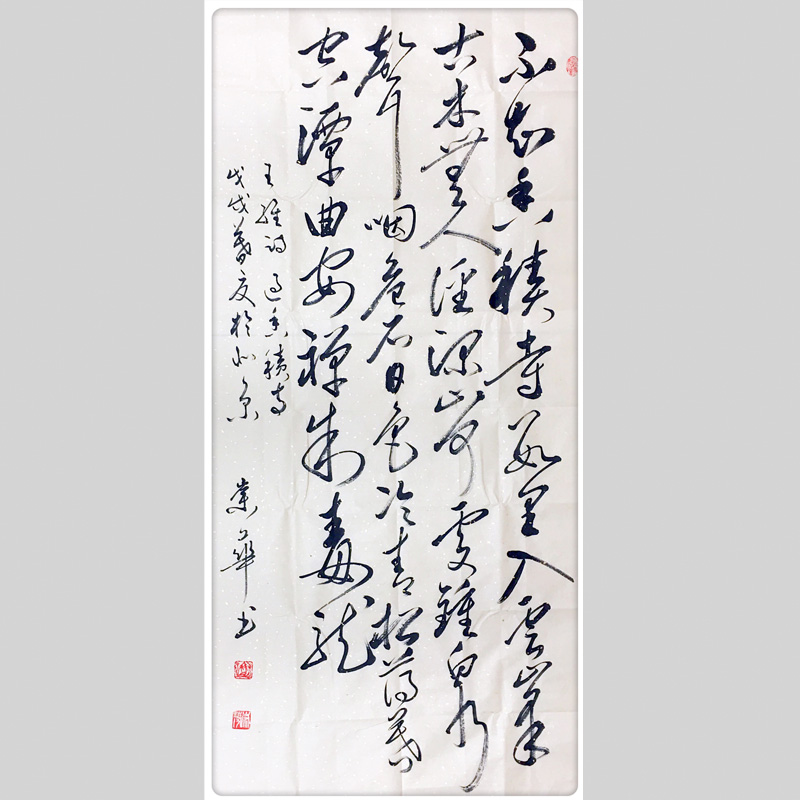 不知香積寺數里入雲峯
古木無人徑深山何處鍾泉
聲咽危石日色冷青松薄暮
空潭曲安禪制毒龍
王維詩過香積寺
戊戌暮夏於北京 華书